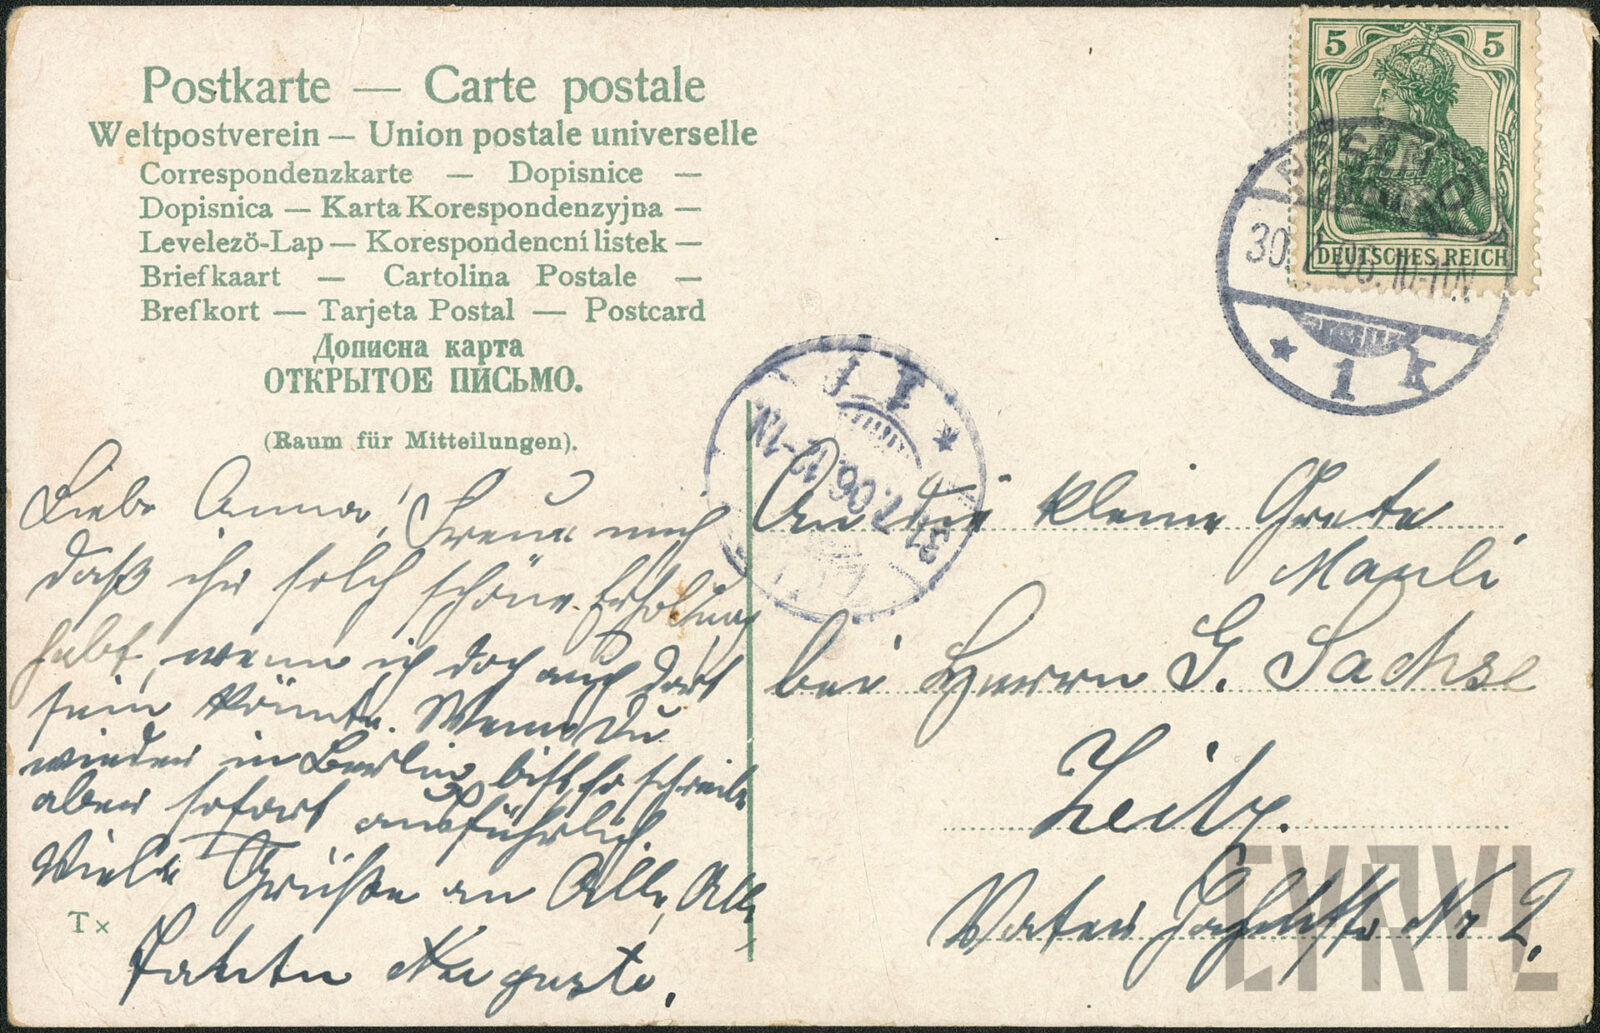 Postkarte — Carte postale
Weltpostverein — Union postale universelle
Correspondenzkarte — Dopisnice —
Dopisnica — Karta Korespondenzyjna —
Levelező-Lap — Korespondencní listek —
Briefkaart — Cartolina Postale —
Brefkort — Tarjeta Postal — Postcard
Дописна карта
ОТКРЫТОЕ ПИСЬМО.
(Raum für Mitteilungen).
5 5
DEUTSCHES REICH
30. 06. 10-11N
* 1 k
1 f *
31.7.06. 12-1N
Liebe Anna! Freue mich
daß ihr solch schöne Erholung
habt, wenn ich doch auch dort
sein könnte. Wenn Du
wieder in Berlin bist, so schreibe
aber sofort ausführlich.
Viele Grüße an Alle, Alle
Tante Auguste.
Tx
An die kleine Grete
Mauli
bei Herrn G. Sachse
Zeitz.
Vater Jahnstr. No 2.
CYRYL